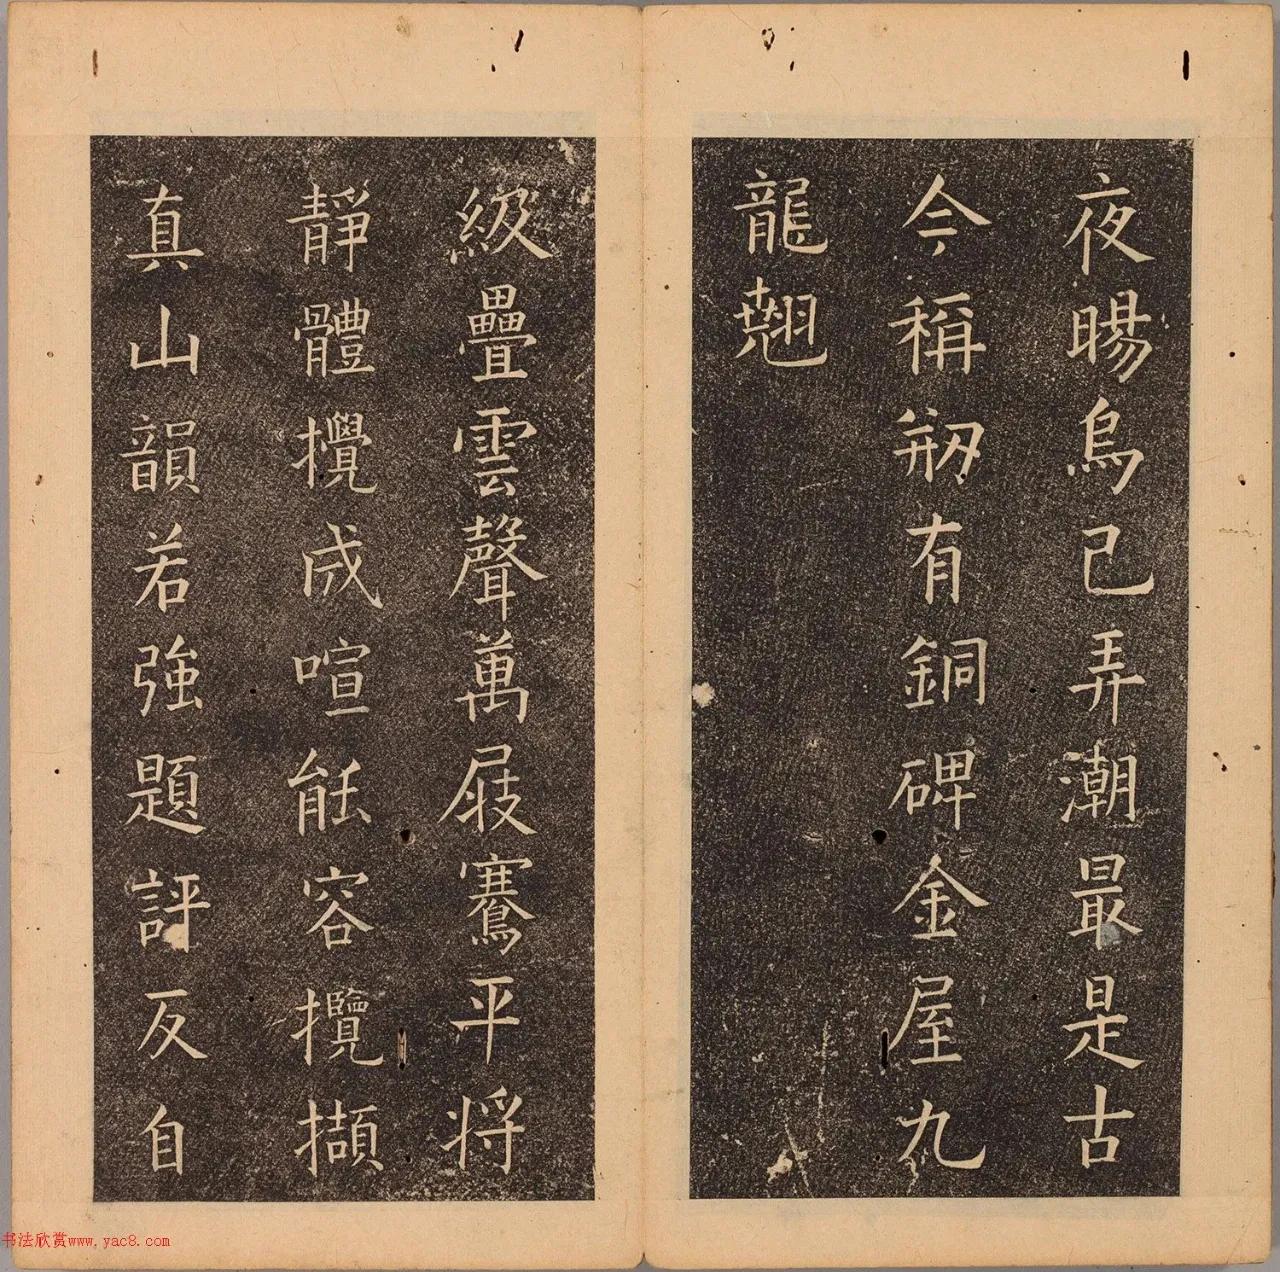 夜暘烏已弄潮最是古
今稱剏有銅碑金屋九
龍翹
級疊雲聲萬屐騫平将
靜體攪成喧能容攬擷
真山韻若強題評反自
书法欣赏www.yac8.com